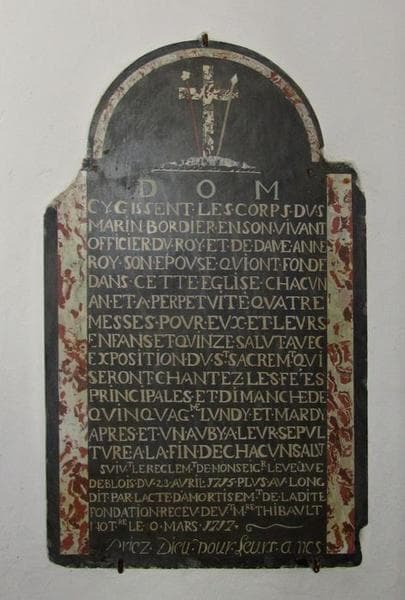 D O M
CY·GISSENT·LES·CORPS·DVS
MARIN·BORDIER·EN·SON·VIVANT
OFFICIER·DV·ROY·ET·DE·DAME·ANNE
ROY·SON·EPOVSE·QVI·ONT·FONDE
DANS·CETTE·EGLISE·CHACVN
AN·ET·A·PERPETVITE·QVATRE
MESSES·POVR·EVX·ET·LEVRS
ENFANS·ET·QVINZE·SALVT·AVEC
EXPOSITION·DV·ST·SACREMT·QVI
SERONT·CHANTEZ·LES·FÉES
PRINCIPALES·ET·DIMANCHE·DE
QVINQVAG·ME·LVNDY·ET·MARDY
APRES·ET·VN·AVBY·A·LEVR·SEPVL
TVRE·A·LA·FIN·DE·CHACVN·SALVT
SUIVT·LE·REGLEMT·DE·MONSEIGR·LEVEQVE
DE·BLOIS·DU·23·AVRIL·1715·PLVS·AV·LONG
DIT·PAR·LACTE·DAMORTISEMT·DE·LADITE
FONDATION·RECEV·DEVT·MRE·THIBAVLT
NOTRE·LE·MARS·1717·
Priez·Dieu·pour·leurs·ames